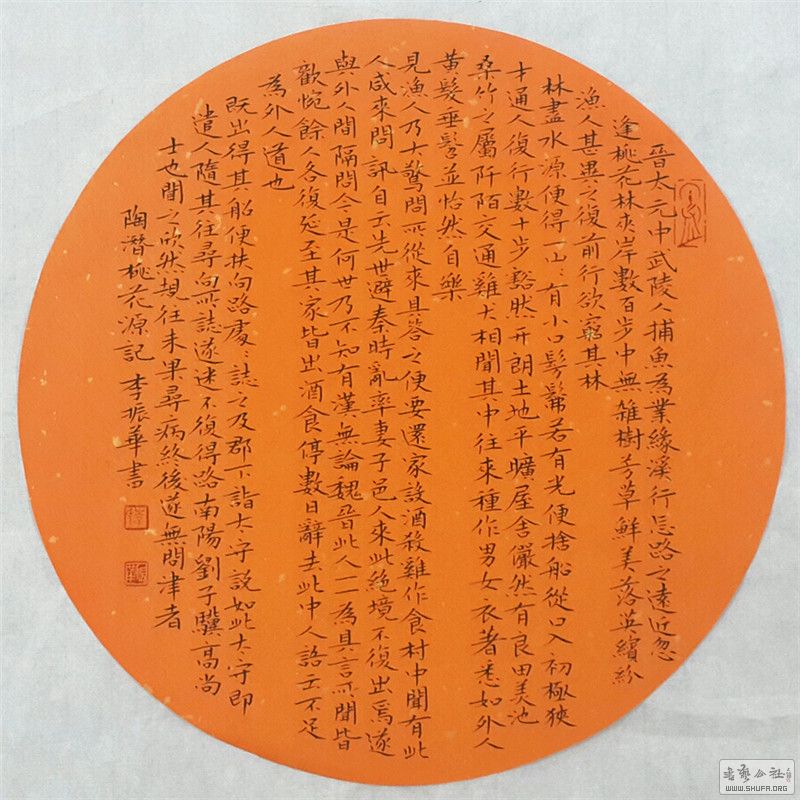 晉太元中武陵人捕魚為業緣溪行忘路之遠近忽
逢桃花林夾岸數百步中無雜樹芳草鮮美落英繽紛
漁人甚異之復前行欲窮其林
林盡水源便得一山〻有小口髣髴若有光便捨船從口入初極狹
才通人復行數十步豁然开朗土地平曠屋舍儼然有良田美池
桑竹之屬阡陌交通雞犬相聞其中往來種作男女衣著悉如外人
黃髮垂髫並怡然自樂
見漁人乃大驚問所從來具答之便要還家設酒殺雞作食村中聞有此
人咸來問訊自云先世避秦時亂率妻子邑人來此絕境不復出焉遂
與外人間隔問今是何世乃不知有漢無論魏晉此人一一為具言所聞皆
歎惋餘人各復延至其家皆出酒食停數日辭去此中人語云不足
為外人道也
既出得其船便扶向路處〻誌之及郡下詣太守說如此太守即
遣人隨其往尋向所誌遂迷不復得路南陽劉子驥高尚
士也聞之欣然規往未果尋病終後遂無問津者
陶潛桃花源記 李振華書
WWW.SHUFA.ORG